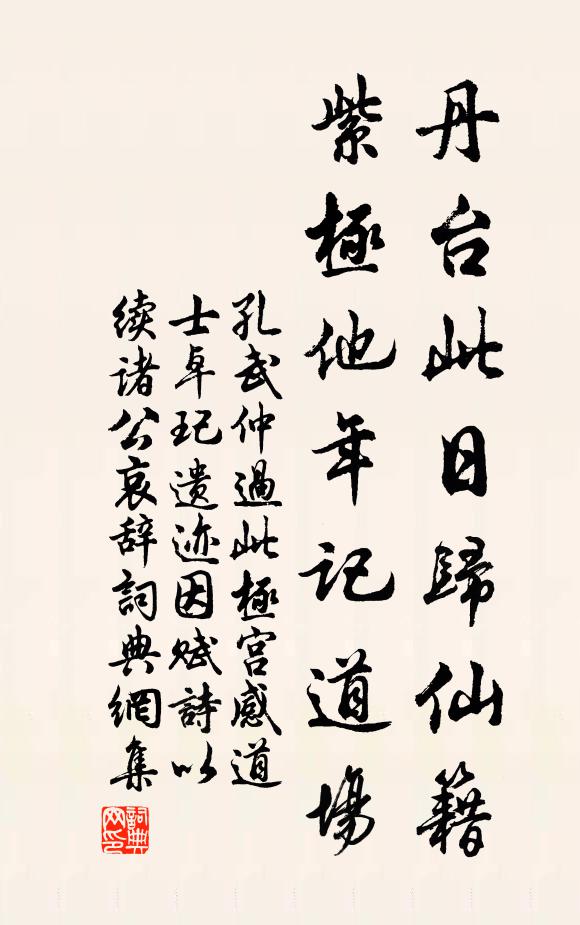 丹台此日歸仙籍
紫極他年記道場
孔武仲過此極宮感道
士卓玘遺迹因赋詩以
續諸公哀辞詞典網集
詞典网印